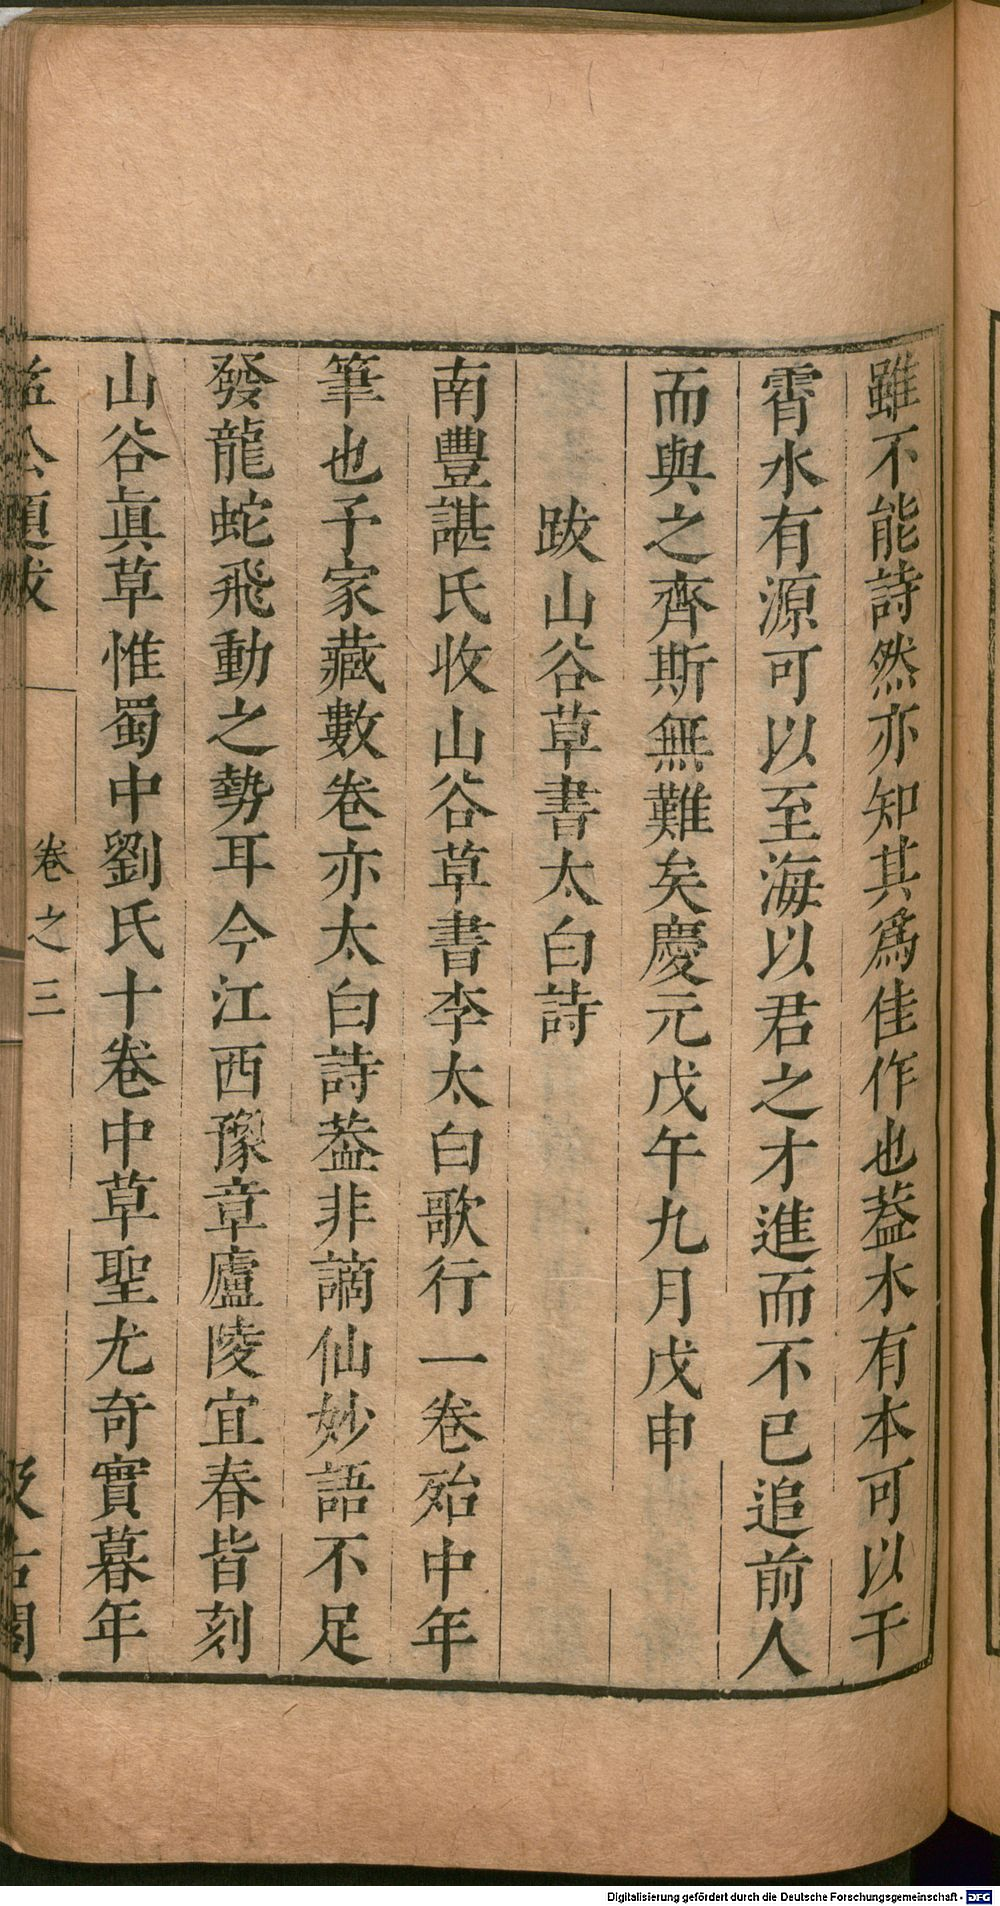 雖不能詩然亦知其爲佳作也葢木有本可以干
霄水有源可以至海以君之才進而不已追前人
而與之齊斯無難矣慶元戊午九月戊申
跋山谷草書太白詩
南豐諶氏收山谷草書李太白歌行一卷殆中年
筆也予家藏數卷亦太白詩葢非謫仙妙語不足
發龍蛇飛動之勢耳今江西豫章廬陵宜春皆刻
山谷眞草惟蜀中劉氏十卷中草聖尤奇實暮年
益公題跋
卷之三
汲古閣
Digitalisierung gefördert durch die Deutsche Forschungsgemeinschaft - DFG